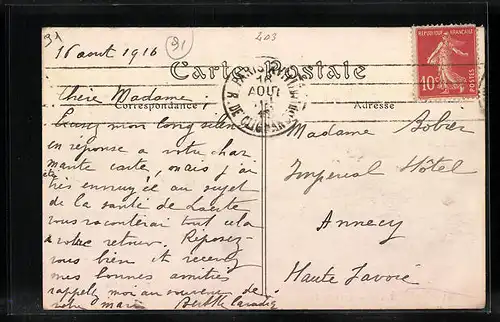 31
16 aout 1916
91
403
Carte Postale
PARIS
AOUT
R. DE CLIGNANCOURT
REPUBLIQUE FRANÇAISE
10c
POSTES
Correspondance
Adresse
Chère Madame,
mon long silence
en réponse a votre char
mante carte, mais j'ai
été
très ennuyée au sujet
de la santé de
vous raconterai tout cela
a votre retour. Reposez-
vous bien et recevez
mes bonnes amitiés
rappelez moi au souvenir de
votre mari Berthe
Madame
Imperial Hôtel
Annecy
Haute Savoie